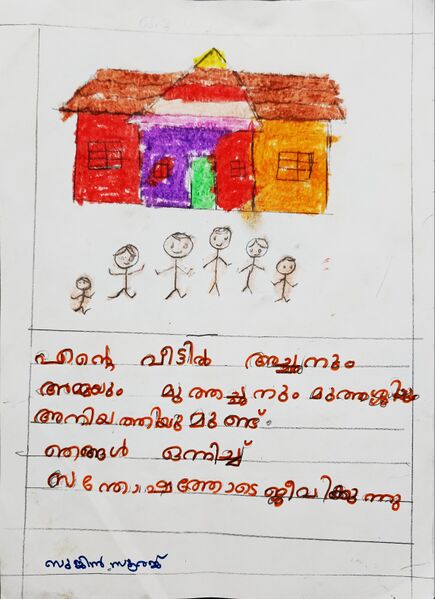 എന്റെ വീട്ടിൽ അച്ഛനും
അമ്മയും മുത്തച്ഛനും മുത്തശ്ശിയും
അനിയത്തിയുമുണ്ട്.
ഞങ്ങൾ ഒന്നിച്ച്
സന്തോഷത്തോടെ ജീവിക്കുന്നു